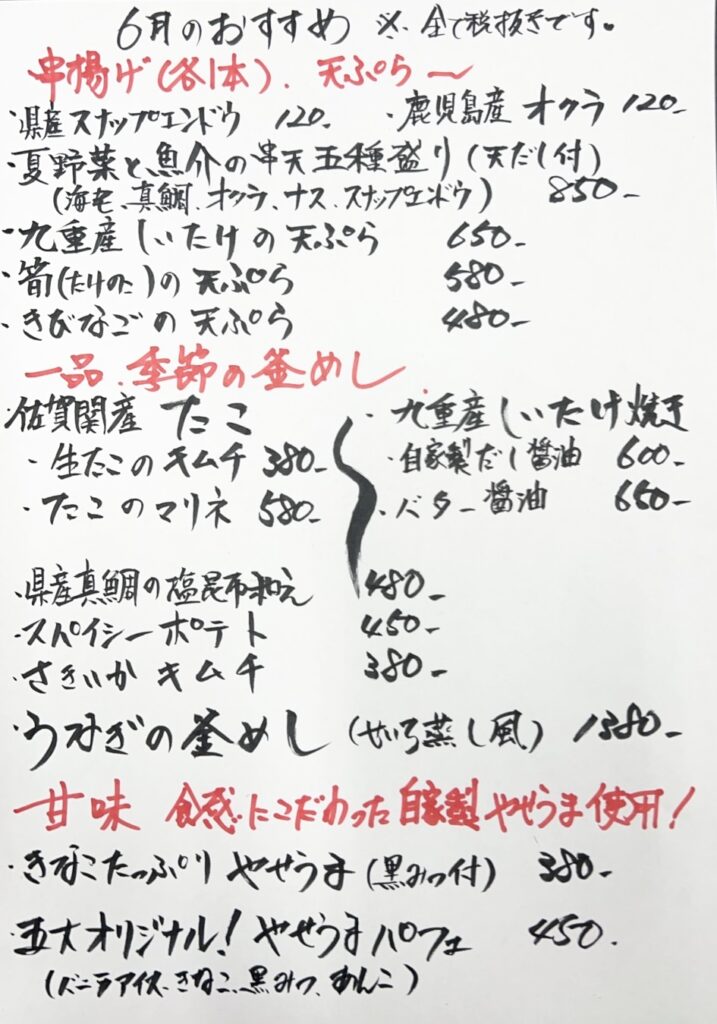 6月のおすすめ ※全て税抜きです。
串揚げ(各1本)、天ぷら〜
・県産スナップエンドウ 120-
・鹿児島産オクラ 120-
・夏野菜と魚介の串天五種盛り(天だし付)
(海老、真鯛、オクラ、ナス、スナップエンドウ) 850-
・九重産しいたけの天ぷら 650-
・筍(たけのこ)の天ぷら 580-
・きびなごの天ぷら 480-
一品、季節の釜めし
・佐賀関産たこ
・生たこのキムチ 380-
・たこのマリネ 580-
・九重産しいたけ焼き
・自家製だし醤油 600-
・バター醤油 650-
・県産真鯛の塩昆布和え 480-
・スパイシーポテト 450-
・さきいかキムチ 380-
・うなぎの釜めし(せいろ蒸し風) 1380-
甘味 食感にこだわった自家製やせうま使用!
・きなこたっぷりやせうま(黒みつ付) 380-
・五大オリジナル!やせうまパフェ 450.
(バニラアイス、きなこ、黒みつ、あんこ)